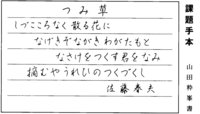 課題手本
山田粋峯書
つみ草
しづごころなく散る花に
なげきぞながきわがたもと
なさけをつくす君をなみ
摘むやうれひのつくづくし
佐藤春夫